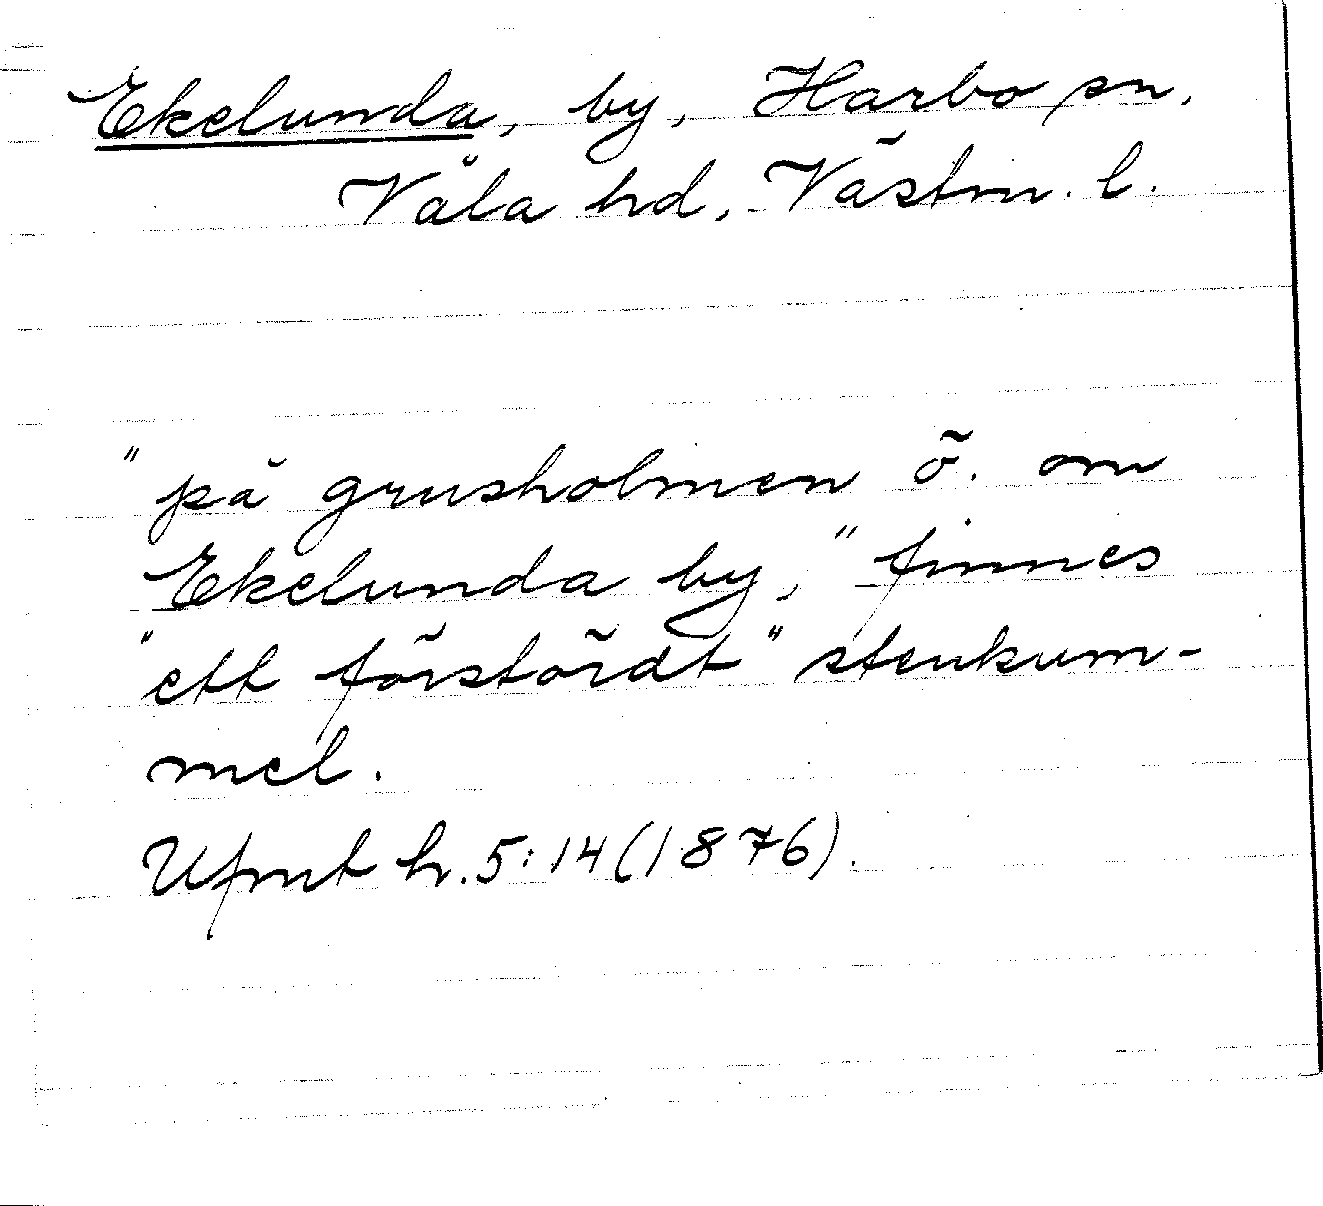 Ekelunda, by, Harbo sn,
Våla hd, Västm. l.
"på grusholmen ö. om
Ekelunda by," finnes
"ett förstördt" stenkum-
mel.
Ufmt h. 5:14 (1876).